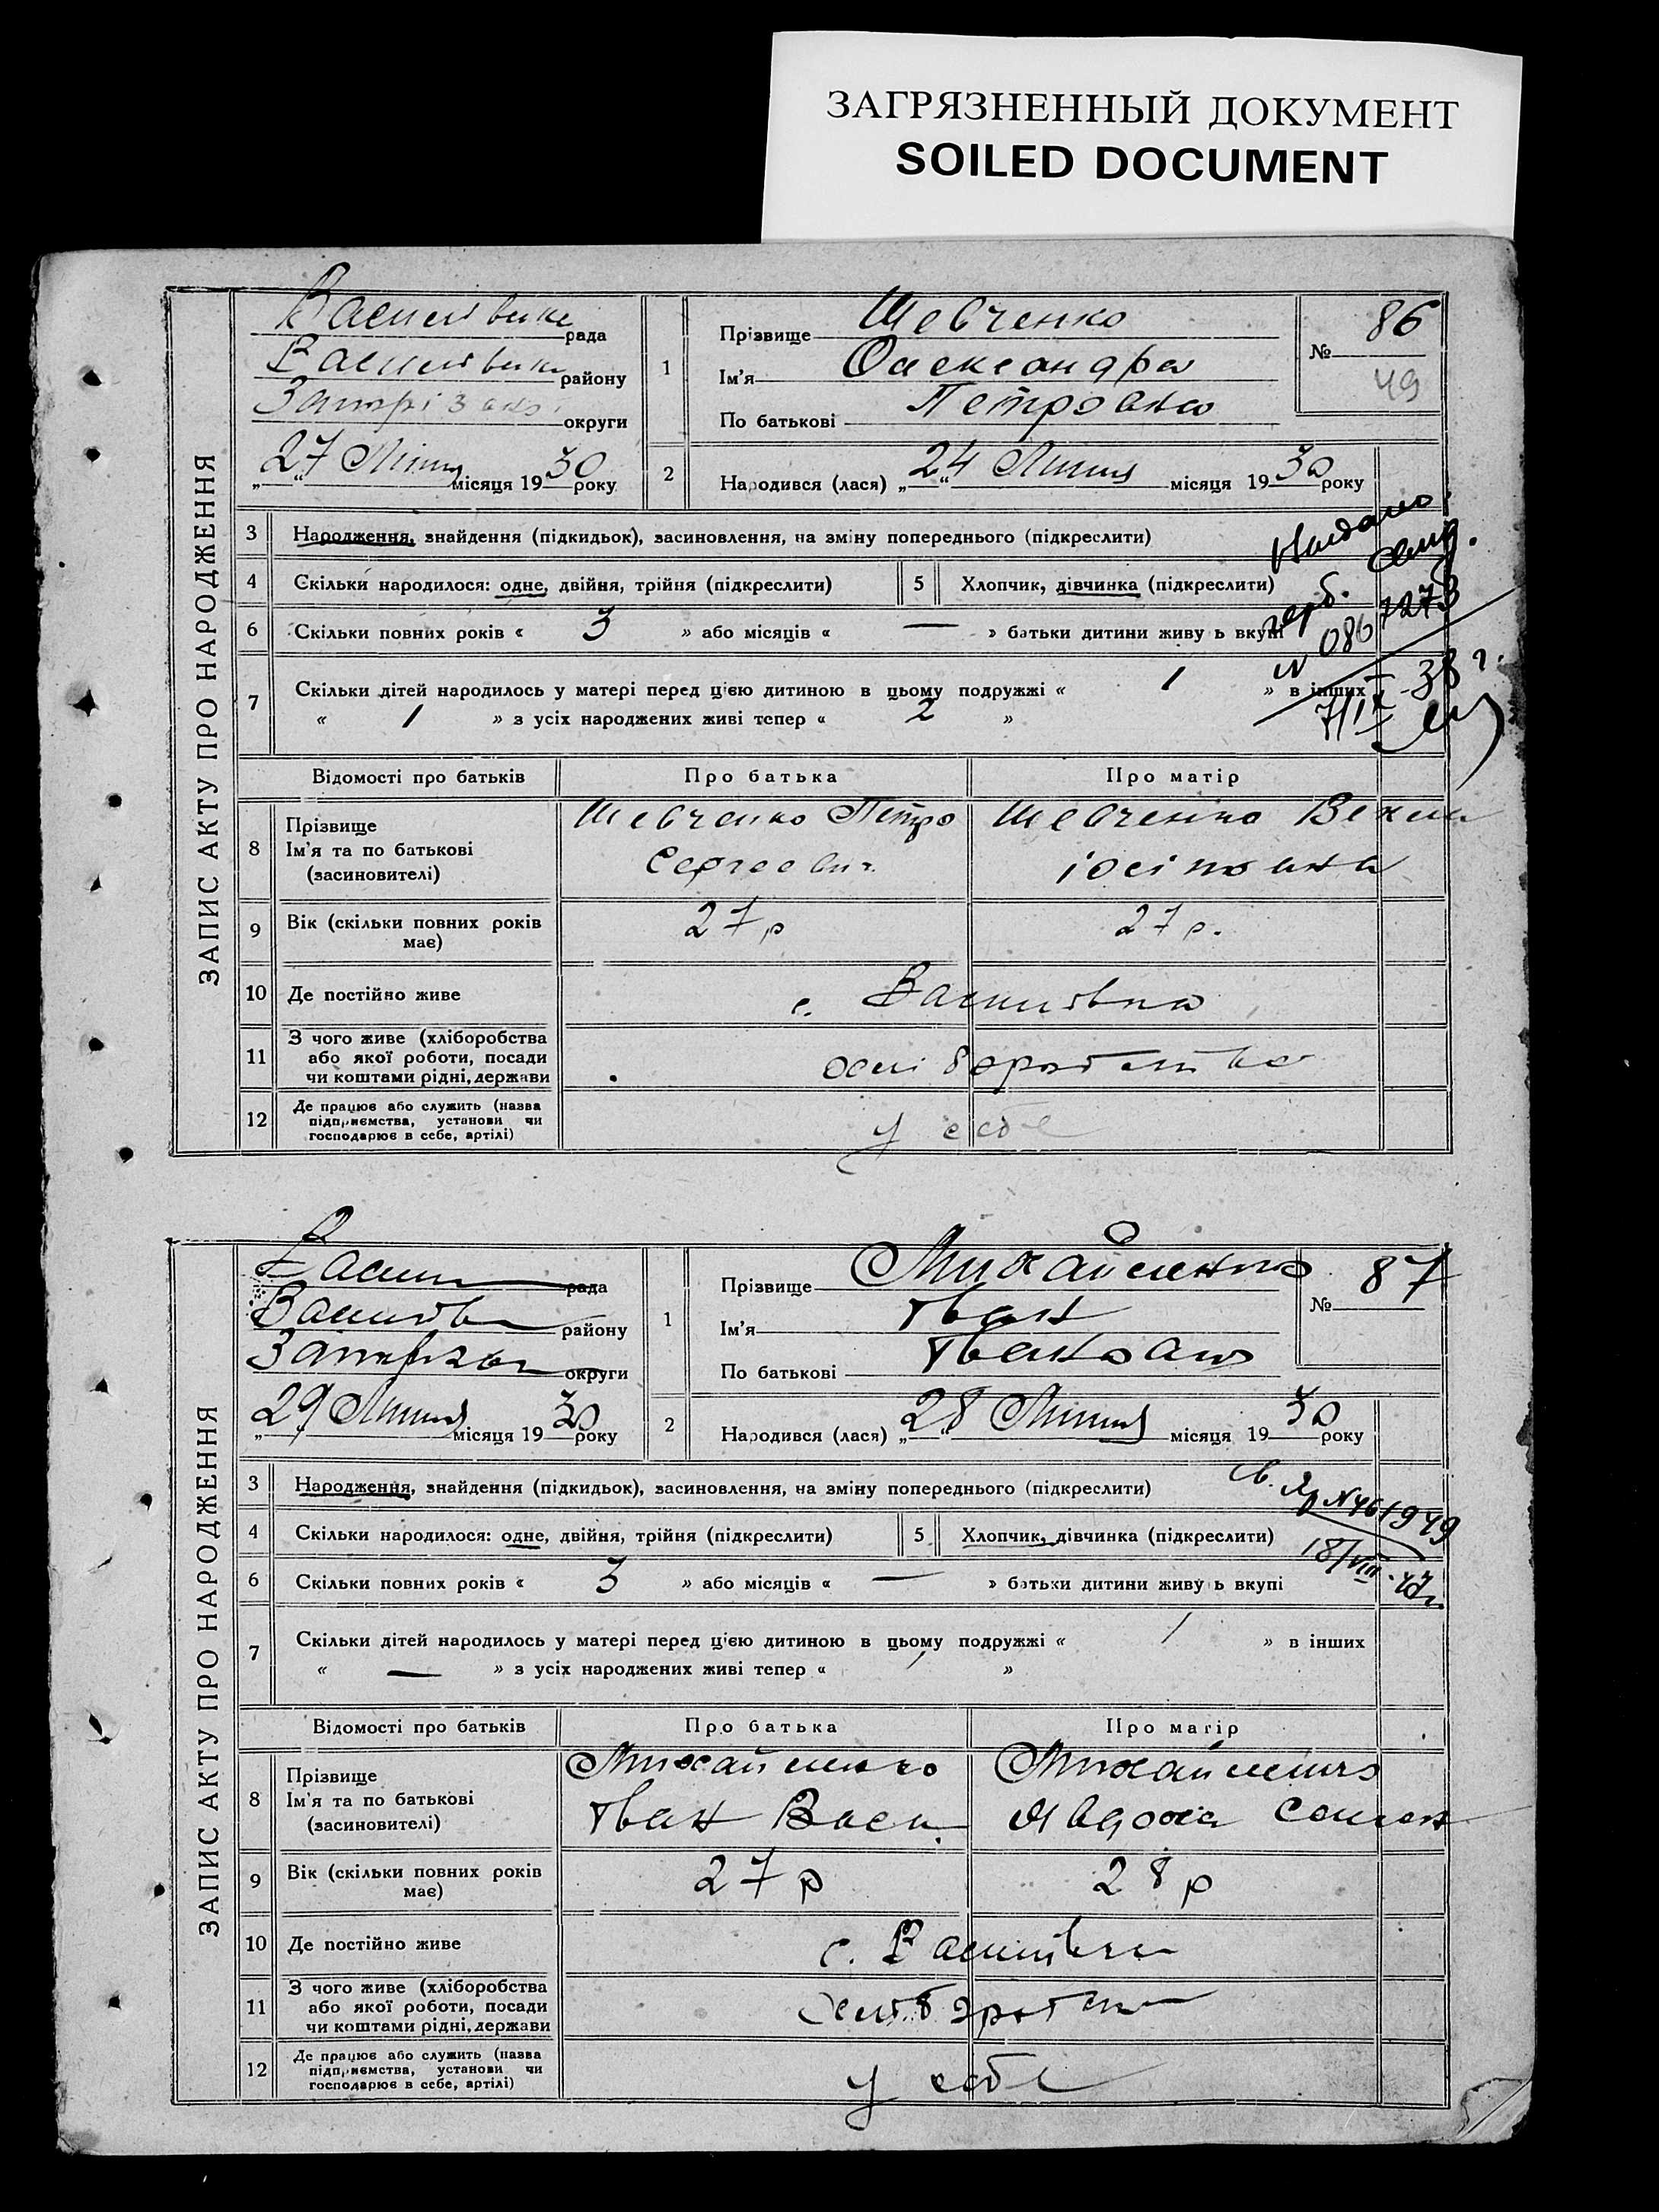 ЗАГРЯЗНЕННЫЙ ДОКУМЕНТ
SOILED DOCUMENT
ЗАПИС АКТУ ПРО НАРОДЖЕННЯ
рада
району
округи
27 Липня місяця 1930 року
1
Прізвище Шевченко
Ім'я Олександра
По батькові Петровна
№ 86
49
2
Народився (лася) „24“ Липня місяця 1930 року
3 Народження, знайдення (підкидьок), засиновлення, на зміну попереднього (підкреслити)
4 Скільки народилося: одне, двійня, трійня (підкреслити)
5 Хлопчик, дівчинка (підкреслити)
6 Скільки повних років « 3 » або місяців « — » батьки дитини живуть вкупі
7 Скільки дітей народилось у матері перед цією дитиною в цьому подружжі « 1 » в інших
« 1 » з усіх народжених живі тепер « 2 »
Відомості про батьків Про батька Про матір
8 Прізвище
Ім'я та по батькові
(засиновителі)
Шевченко Петро
Сергеевич
Шевченко
9 Вік (скільки повних років має) 27 р 27 р.
10 Де постійно живе с. Василівка
11 З чого живе (хліборобства
або якої роботи, посади
чи коштами рідні, держави
12 Де працює або служить (назва
підприємства, установи чи
господарює в себе, артілі)
у себе
ЗАПИС АКТУ ПРО НАРОДЖЕННЯ
рада
району
округи
„29“ Липня місяця 1930 року
1
Прізвище Михайленко
Ім'я Іван
По батькові
№ 87
2
Народився (лася) „28“ Липня місяця 1930 року
3 Народження, знайдення (підкидьок), засиновлення, на зміну попереднього (підкреслити)
4 Скільки народилося: одне, двійня, трійня (підкреслити)
5 Хлопчик, дівчинка (підкреслити)
6 Скільки повних років « 3 » або місяців « — » батьки дитини живуть вкупі
7 Скільки дітей народилось у матері перед цією дитиною в цьому подружжі « 1 » в інших
« — » з усіх народжених живі тепер « 1 »
Відомості про батьків Про батька Про матір
8 Прізвище
Ім'я та по батькові
(засиновителі)
Михайленко
Іван Васи.
Михайленко
9 Вік (скільки повних років має) 27 р 28 р
10 Де постійно живе с. Василівка
11 З чого живе (хліборобства
або якої роботи, посади
чи коштами рідні, держави
12 Де працює або служить (назва
підприємства, установи чи
господарює в себе, артілі)
у себе